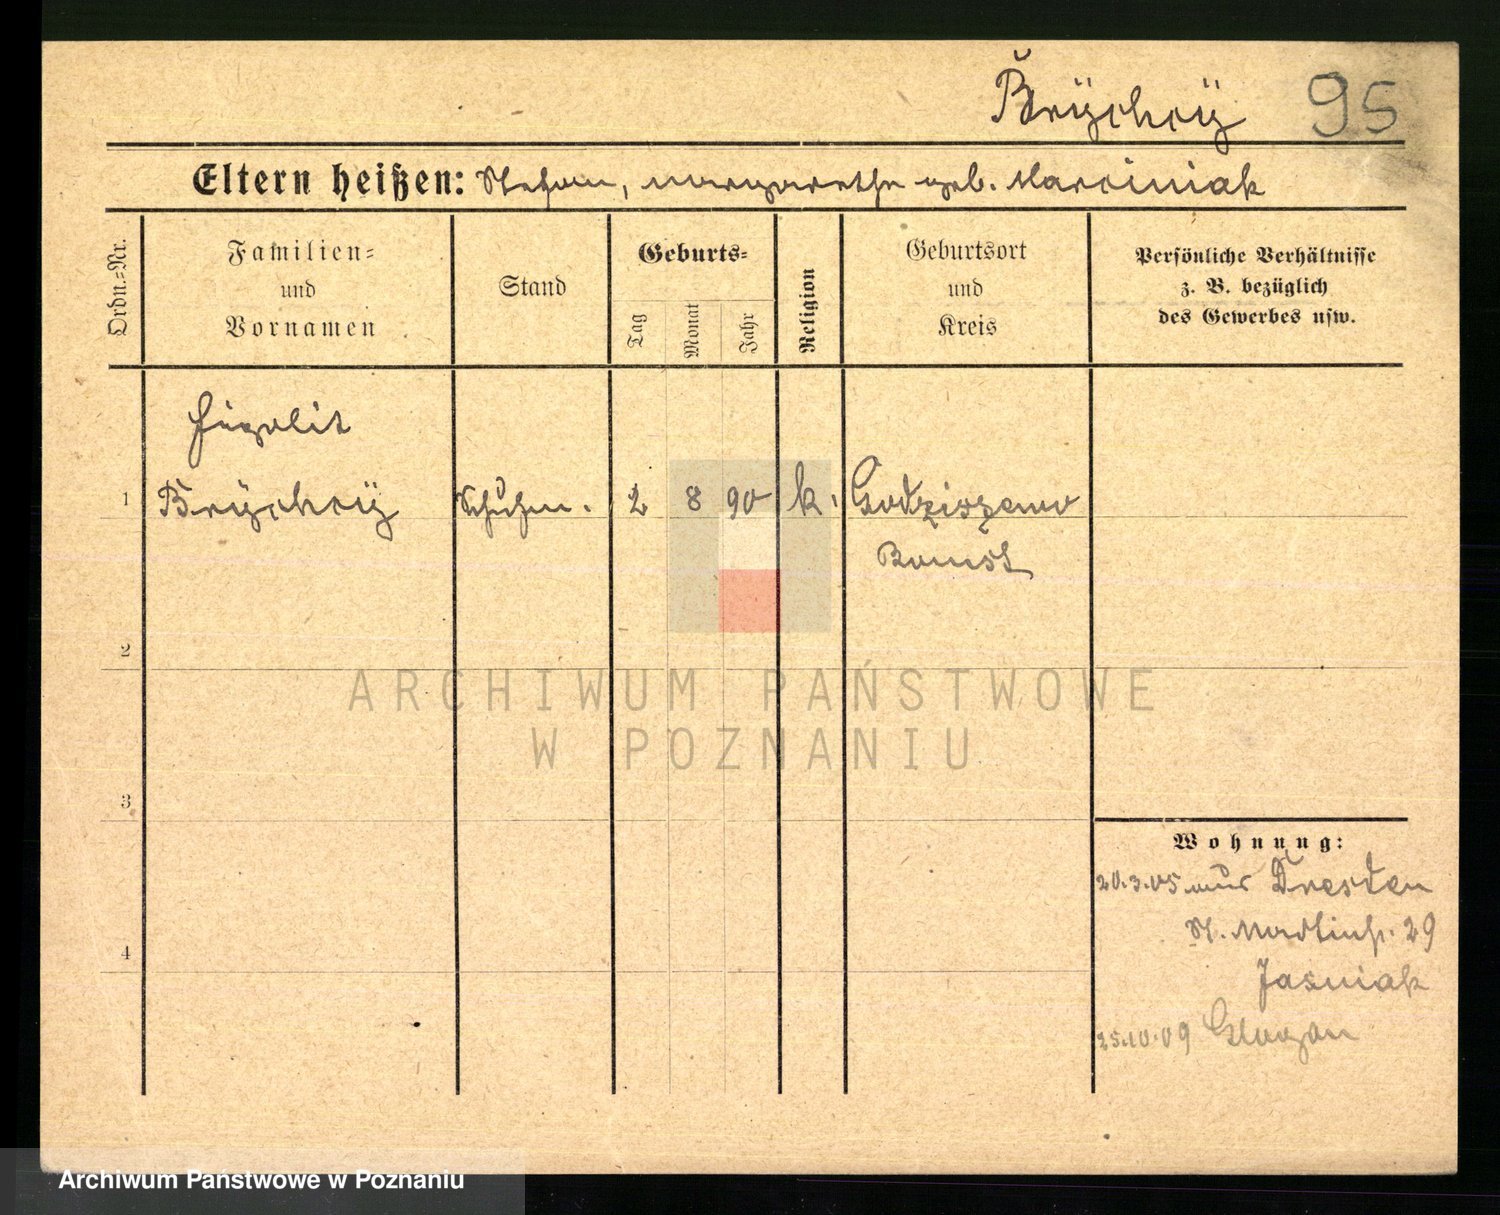 Brÿchcÿ 95
Eltern heißen: Stefan, Margarethe geb. Marciniak
Ordn.=Nr.
Familien=
und
Vornamen
Stand
Geburts=
Tag
Monat
Jahr
Religion
Geburtsort
und
Kreis
Persönliche Verhältnisse
z. B. bezüglich
des Gewerbes usw.
1
Brÿchcÿ
Schuhm.
2 8 90 k.
Godziszewo
Bomst
2
ARCHIWUM PAŃSTWOWE
W POZNANIU
3
Wohnung:
20.3.05 aus Dresden
St. Martinstr. 29
Jasniak
4
25.10.09 Glogau
Archiwum Państwowe w Poznaniu